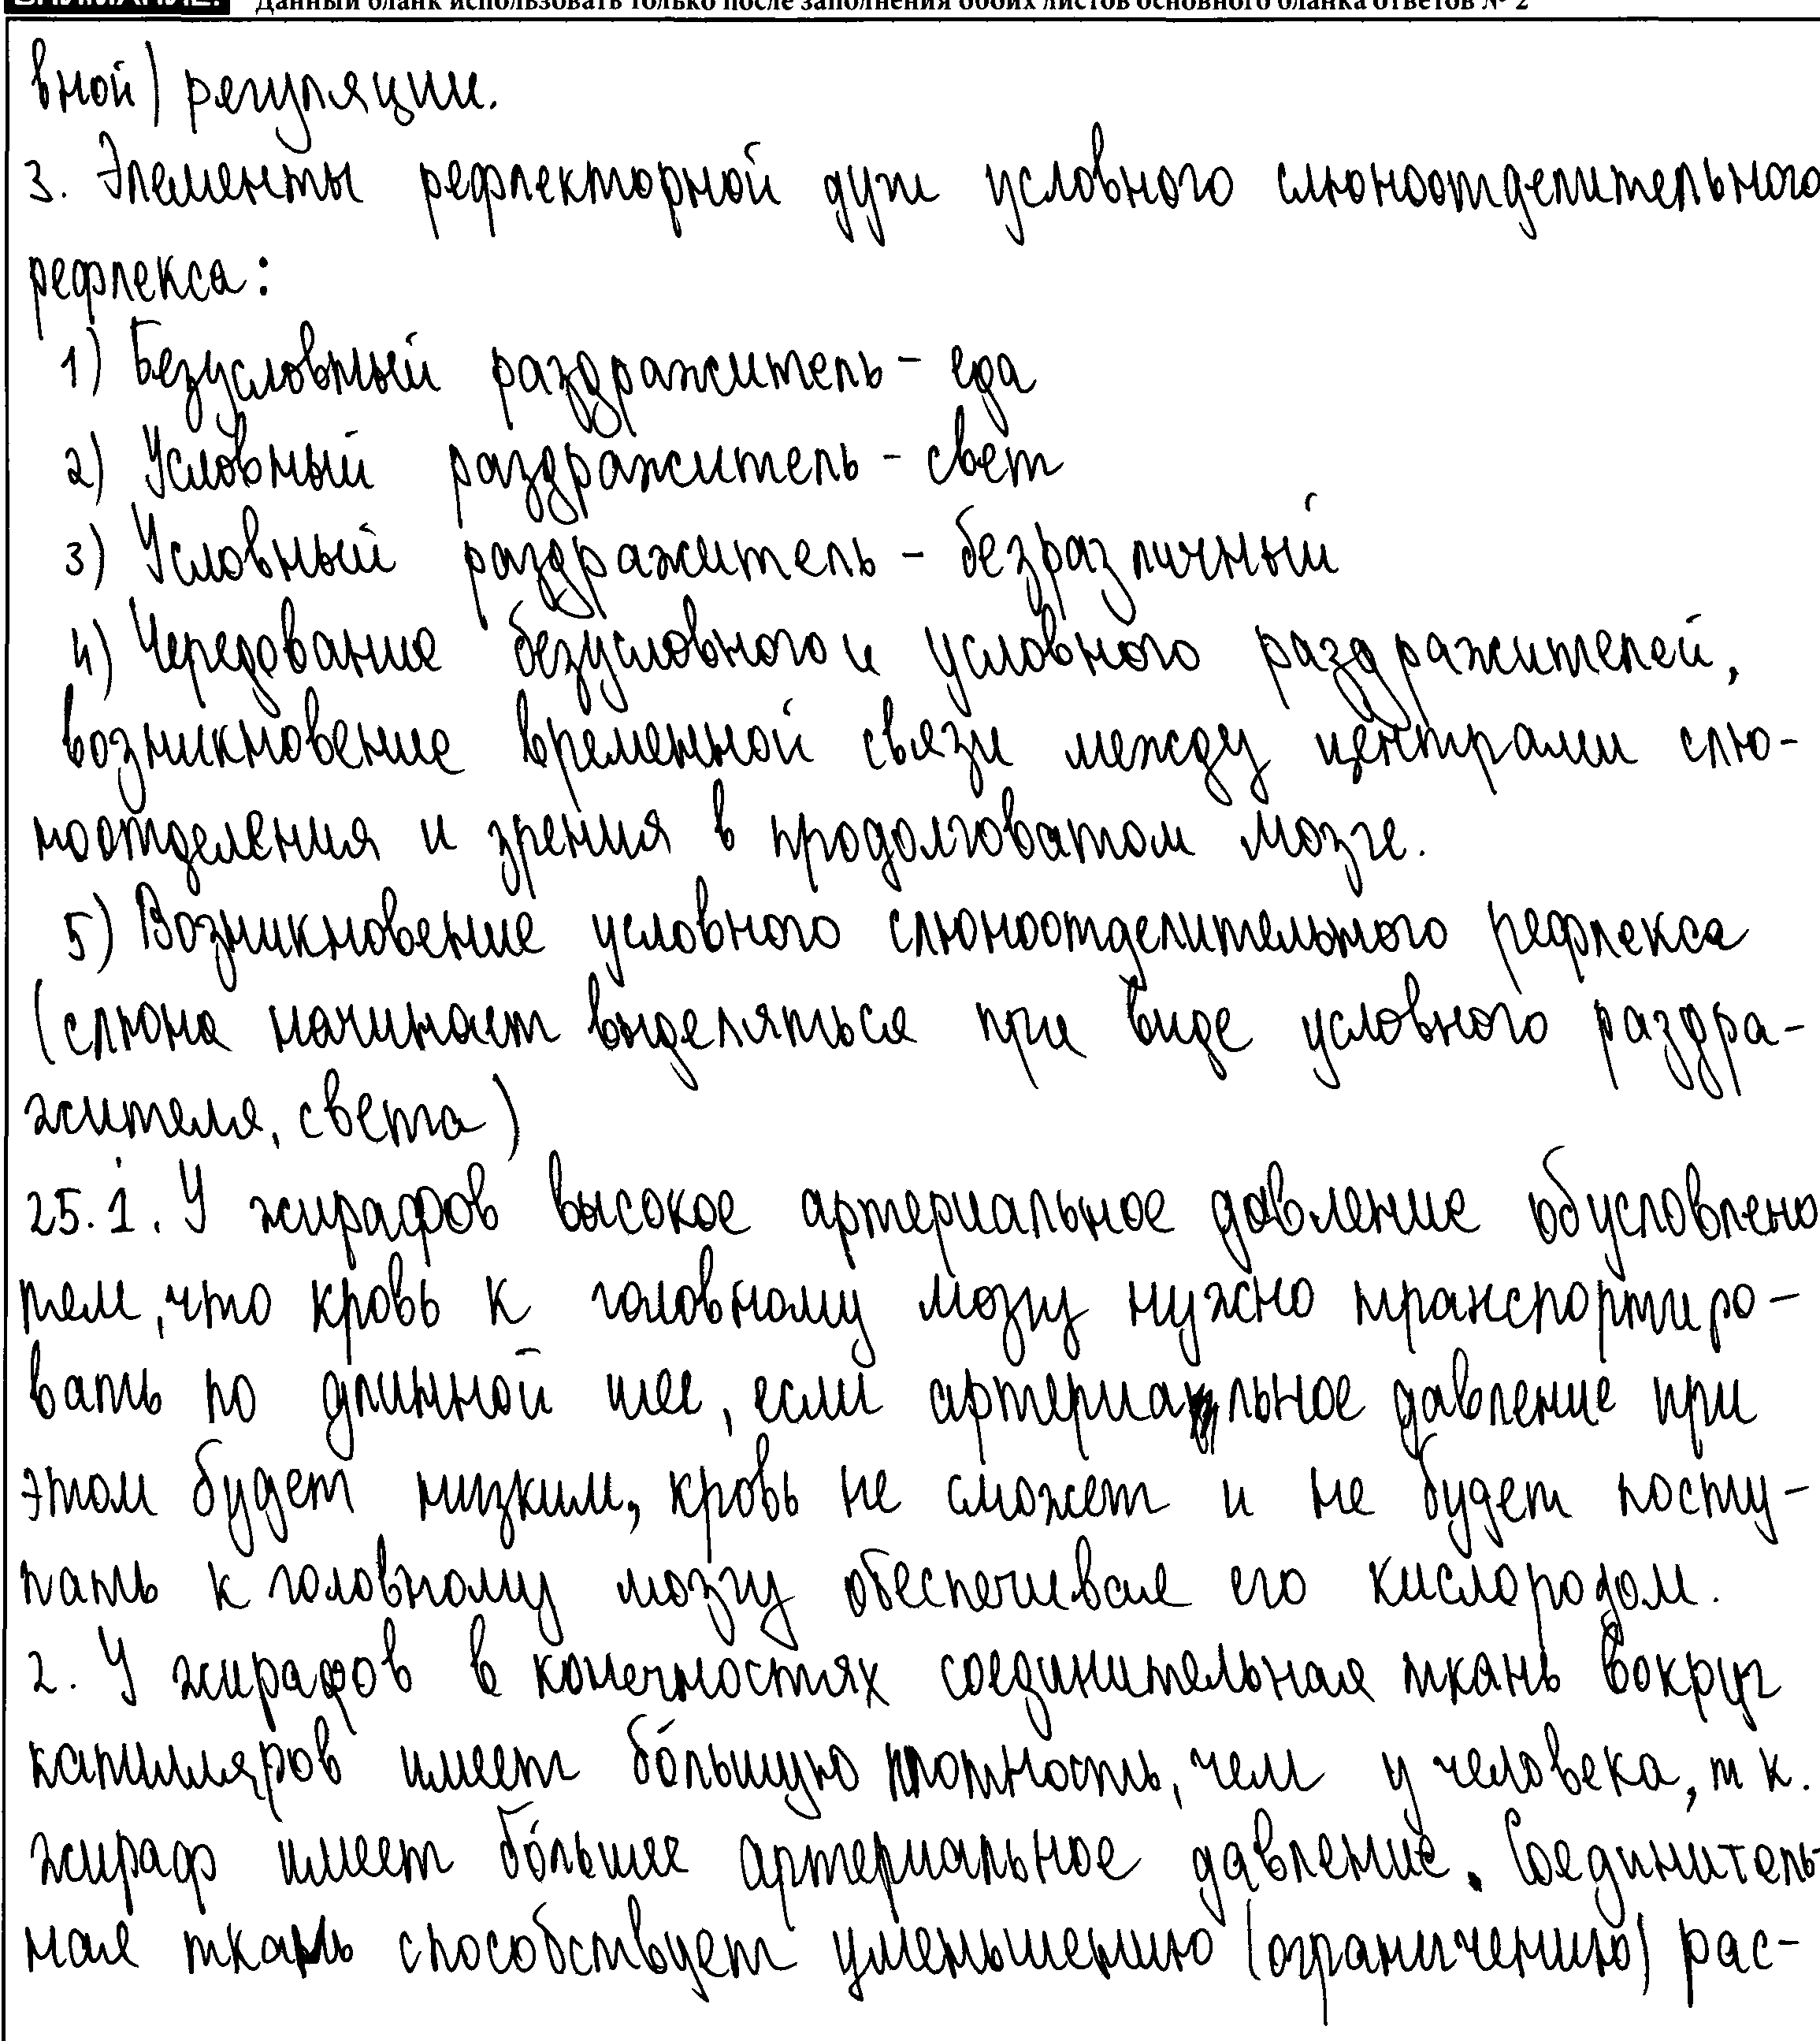 ВНИМАНИЕ! Данный бланк использовать только после заполнения обоих листов основного бланка ответов № 2
вной) регуляции.
3. Элементы рефлекторной дуги условного слюноотделительного
рефлекса:
1) Безусловный раздражитель - еда
2) Условный раздражитель - свет
3) Условный раздражитель - безразличный
4) Чередование безусловного и условного раздражителей,
возникновение временной связи между центрами слю-
ноотделения и зрения в продолговатом мозге.
5) Возникновение условного слюноотделительного рефлекса
(слюна начинает выделяться при виде условного раздра-
жителя, света)
25.1. У жирафов высокое артериальное давление обусловлено
тем, что кровь к головному мозгу нужно транспортиро-
вать по длинной шее, если артериальное давление при
этом будет низким, кровь не сможет и не будет посту-
пать к головному мозгу обеспечивая его кислородом.
2. У жирафов в конечностях соединительная ткань вокруг
капилляров имеет бо́льшую плотность, чем у человека, т к.
жираф имеет бо́льшее артериальное давление. Соединитель-
ная ткань способствует уменьшению (ограничению) рас-